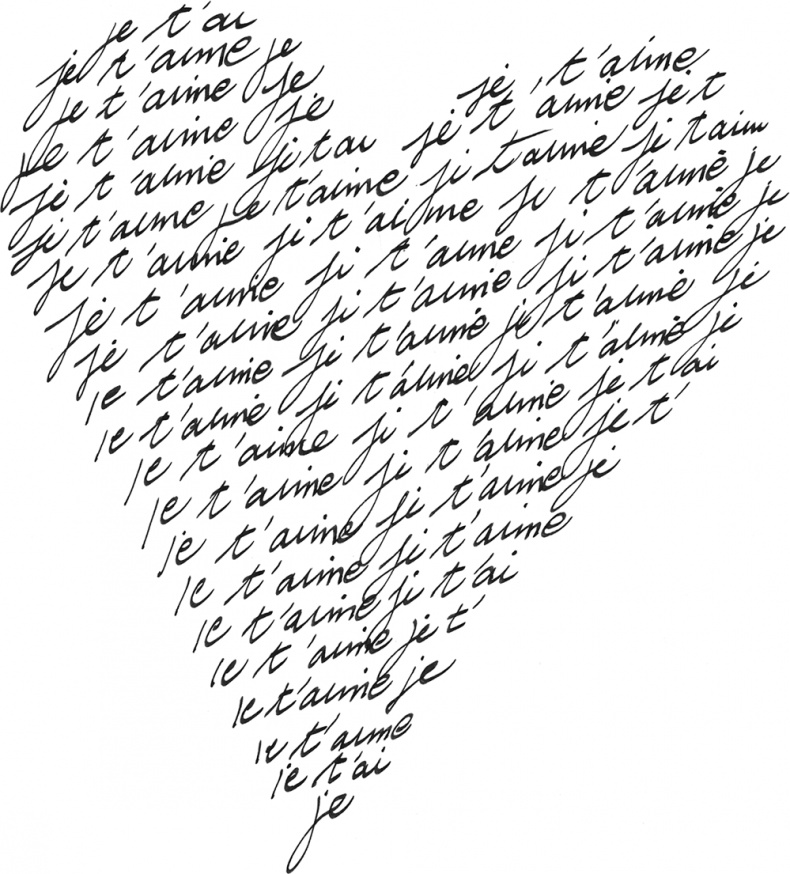 je t'ai
je t'aime je
je t'aime je
je t'aime je
je t'aime
je t'aime je t'ai je t'aime je t
je t'aime je t'aime je t'aime je t'aim
je t'aime je t'aime je t'aime je
je t'aime je t'aime je t'aime je
je t'aime je t'aime je t'aime je
je t'aime je t'aime je t'aime je
je t'aime je t'aime je t'aime je
je t'aime je t'aime je t'ai
je t'aime je t'aime je t'
je t'aime je t'aime je
je t'aime je t'aime
je t'aime je t'ai
je t'aime je t'
je t'aime je
je t'aime
je t'ai
je